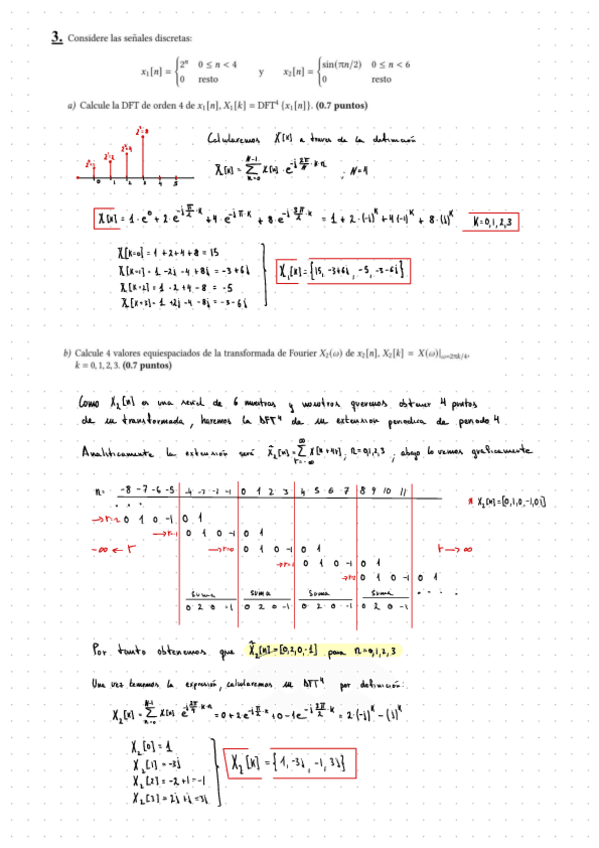 3. Considere las señales discretas:
x₁[n] = { 2ⁿ 0 ≤ n < 4
0 resto
y
x₂[n] = { sin(πn/2) 0 ≤ n < 6
0 resto
a) Calcule la DFT de orden 4 de x₁[n], X₁[k] = DFT⁴ {x₁[n]}. (0.7 puntos)
2⁰=1 2¹=2 2²=4 2³=8
0 1 2 3 4 5
Calcularemos X[k] a traves de la definición
X[k] = Σ_{n=0}^{N-1} x[n] · e^{-j 2π/N · k·n} ; N=4
X[k] = 1·e⁰ + 2·e^{-j π/2 ·k} + 4·e^{-j π·k} + 8·e^{-j 3π/2 ·k} = 1 + 2·(-j)^k + 4(-1)^k + 8·(j)^k K=0,1,2,3
X[k=0] = 1+2+4+8 = 15
X[k=1] = 1 -2j -4 +8j = -3+6j
X[k=2] = 1 -2 +4 -8 = -5
X[k=3] = 1 +2j -4 -8j = -3-6j
X₁[k] = {15, -3+6j, -5, -3-6j}
b) Calcule 4 valores equiespaciados de la transformada de Fourier X₂(ω) de x₂[n], X₂[k] = X(ω)|_{ω=2πk/4},
k = 0, 1, 2, 3. (0.7 puntos)
Como X₂[n] es una señal de 6 muestras y nosotros queremos obtener 4 puntos
de su transformada, haremos la DFT⁴ de su extension periodica de periodo 4
Analíticamente la extensión será x̃₂[n] = Σ_{r=-∞}^{∞} x[n+4r] ; n=0,1,2,3 ; abajo lo vemos graficamente
n= -8 -7 -6 -5 -4 -3 -2 -1 0 1 2 3 4 5 6 7 8 9 10 11
* X₂[n]=[0,1,0,-1,0,1]
→r=-2 0 1 0 -1 0 1
→r=-1 0 1 0 -1 0 1
-∞ ← r →r=0 0 1 0 -1 0 1 r → ∞
→r=1 0 1 0 -1 0 1
→r=2 0 1 0 -1 0 1
suma suma suma suma
0 2 0 -1 0 2 0 -1 0 2 0 -1 0 2 0 -1
Por tanto obtenemos que x̃₂[n]=[0,2,0,-1] para n=0,1,2,3
Una vez tenemos la expresión, calcularemos su DFT⁴ por definición:
X₂[k] = Σ_{n=0}^{N-1} x[n] e^{-j 2π/N k·n} = 0+2e^{-j π/2 ·k} +0 -1e^{-j 3π/2 ·k} = 2·(-j)^k - (j)^k
X₂[0] = 1
X₂[1] = -3j
X₂[2] = -2+1 = -1
X₂[3] = 2j+j = 3j
X₂[k] = {1, -3j, -1, 3j}